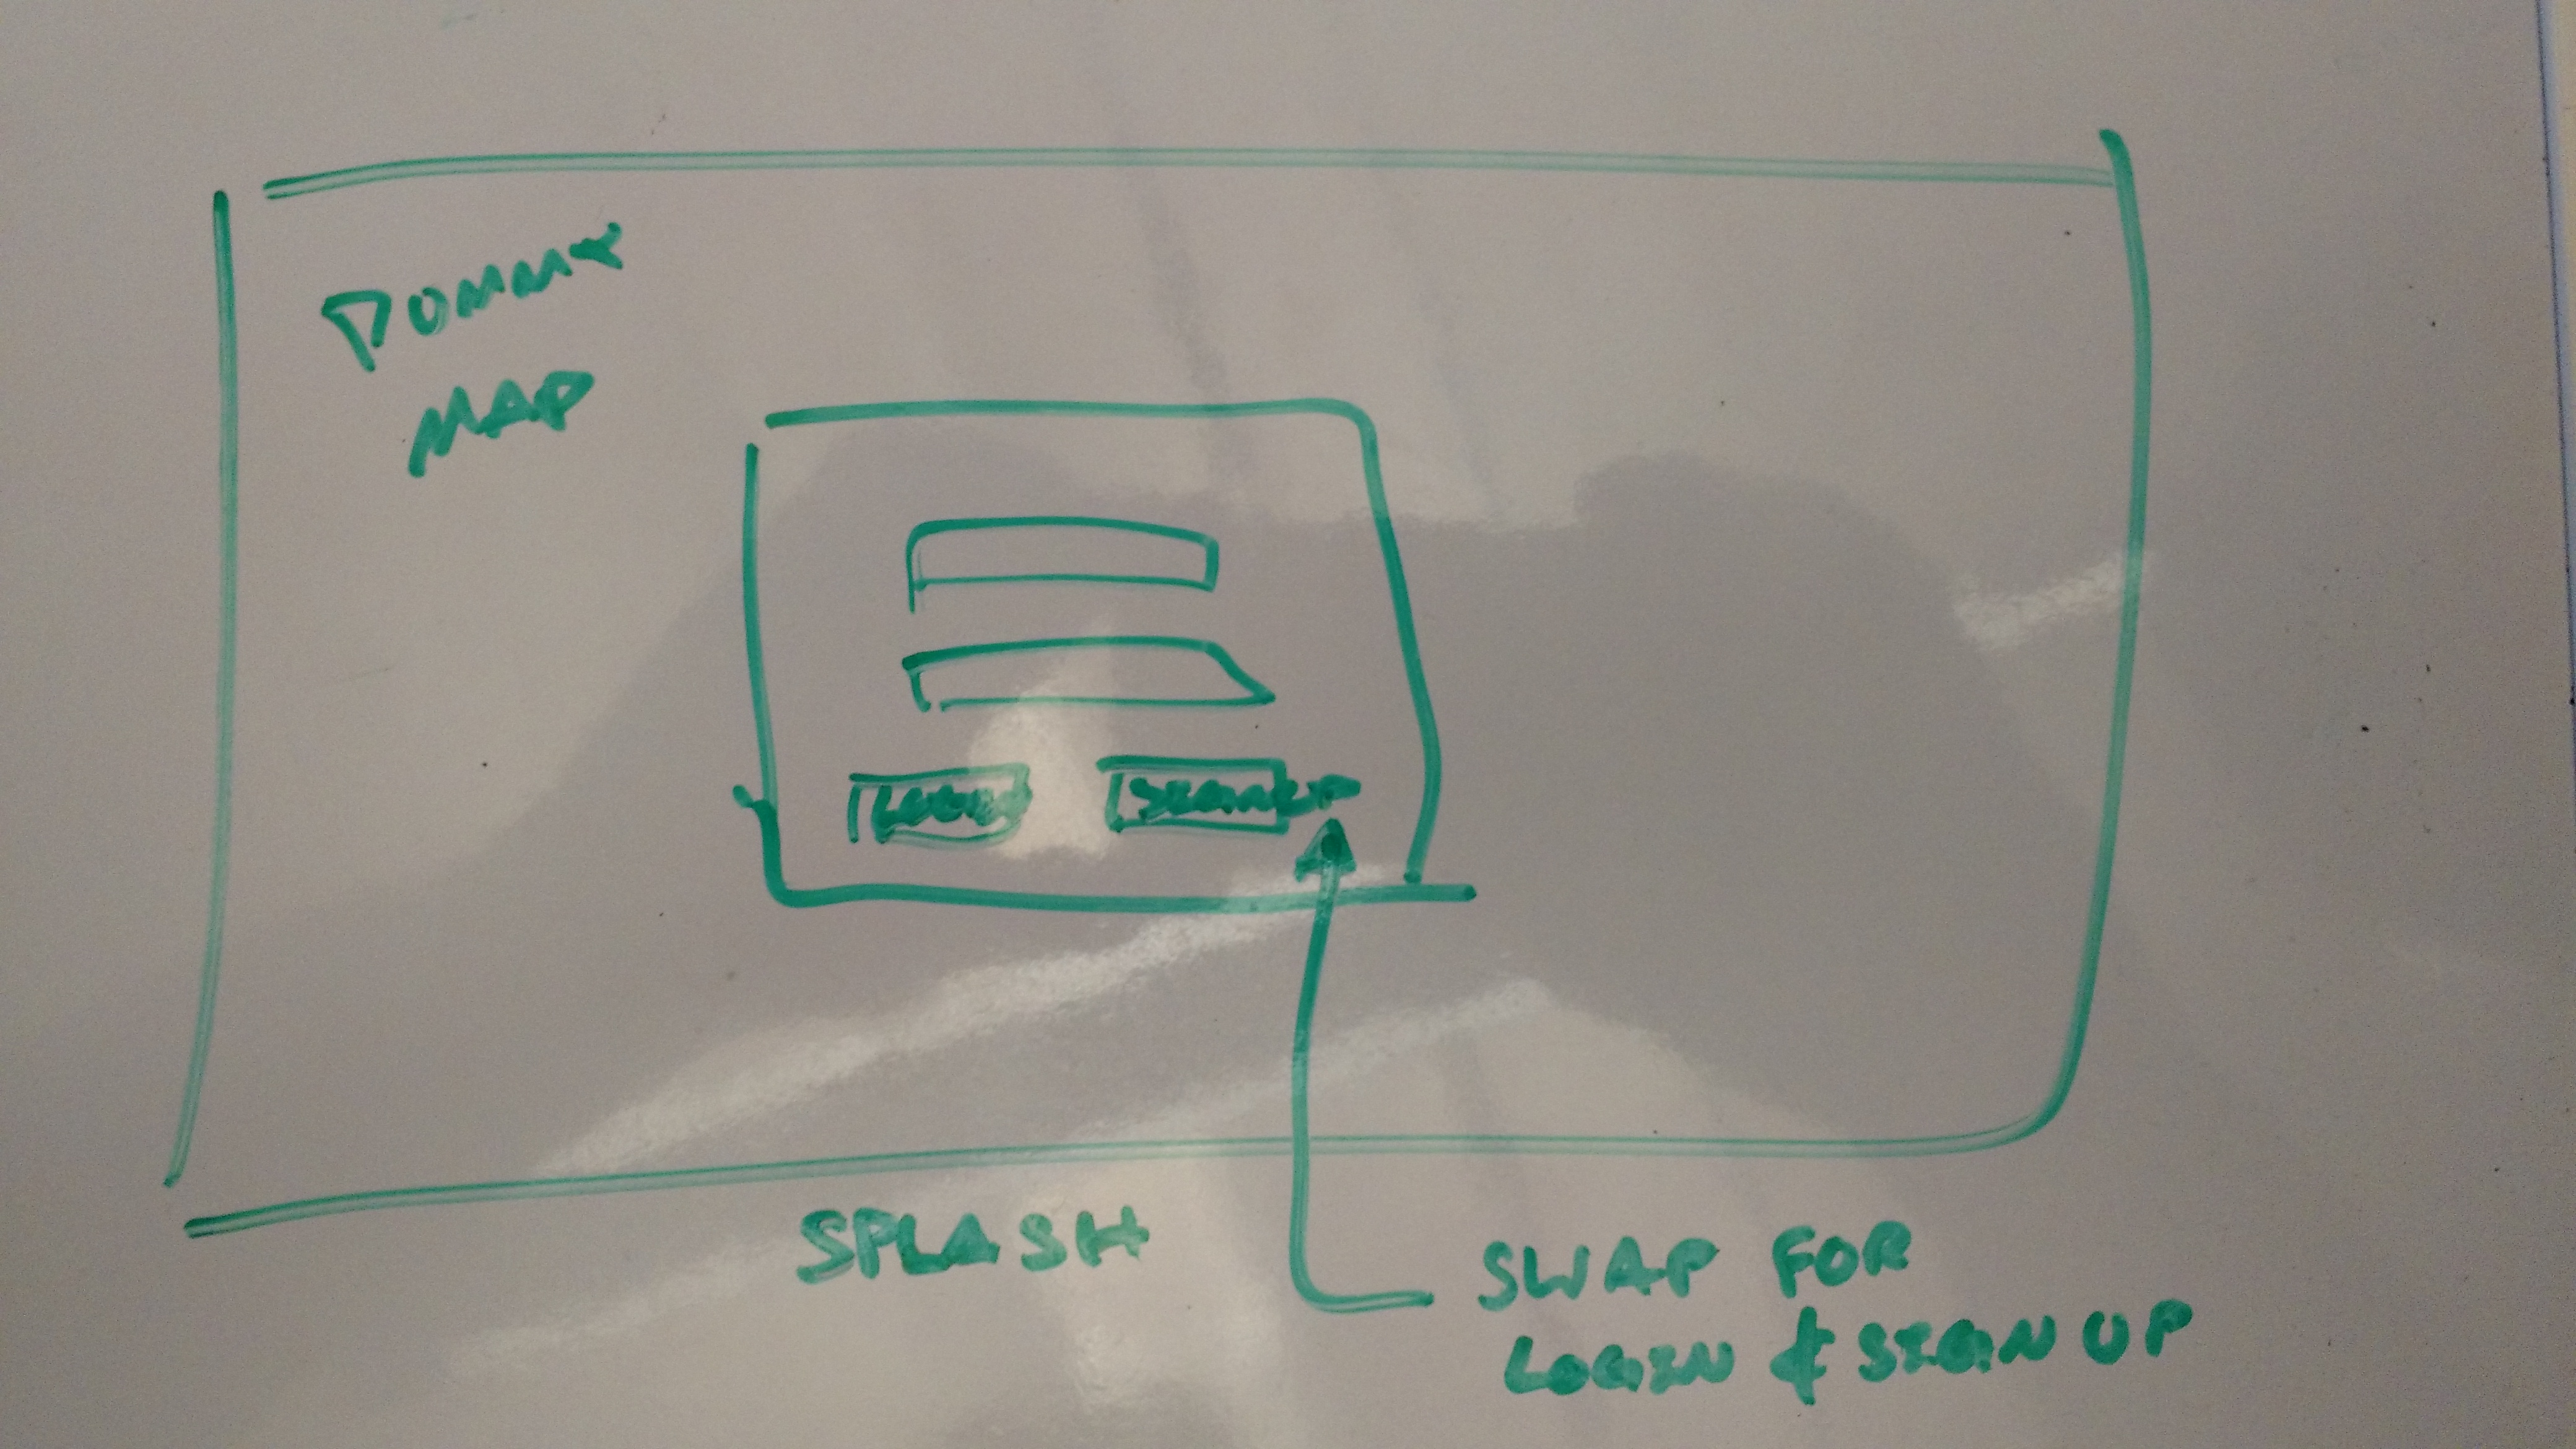 DUMMY
MAP
LOGIN
SIGNUP
SPLASH
SWAP FOR
LOGIN & SIGN UP